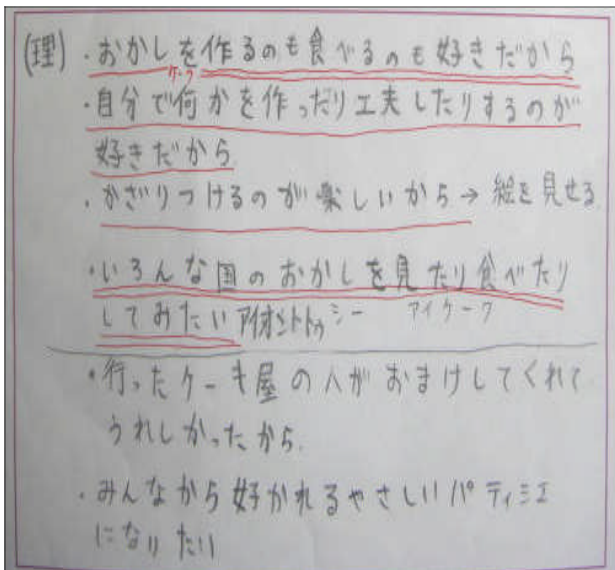 (理)・おかしを作るのも食べるのも好きだから
・自分で何かを作ったり工夫したりするのが
好きだから
・かざりつけるのが楽しいから→絵を見せる
・いろんな国のおかしを見たり食べたり
してみたい
・行ったケーキ屋の人がおまけしてくれて
うれしかったから.
・みんなから好かれるやさしいパティシエ
になりたい